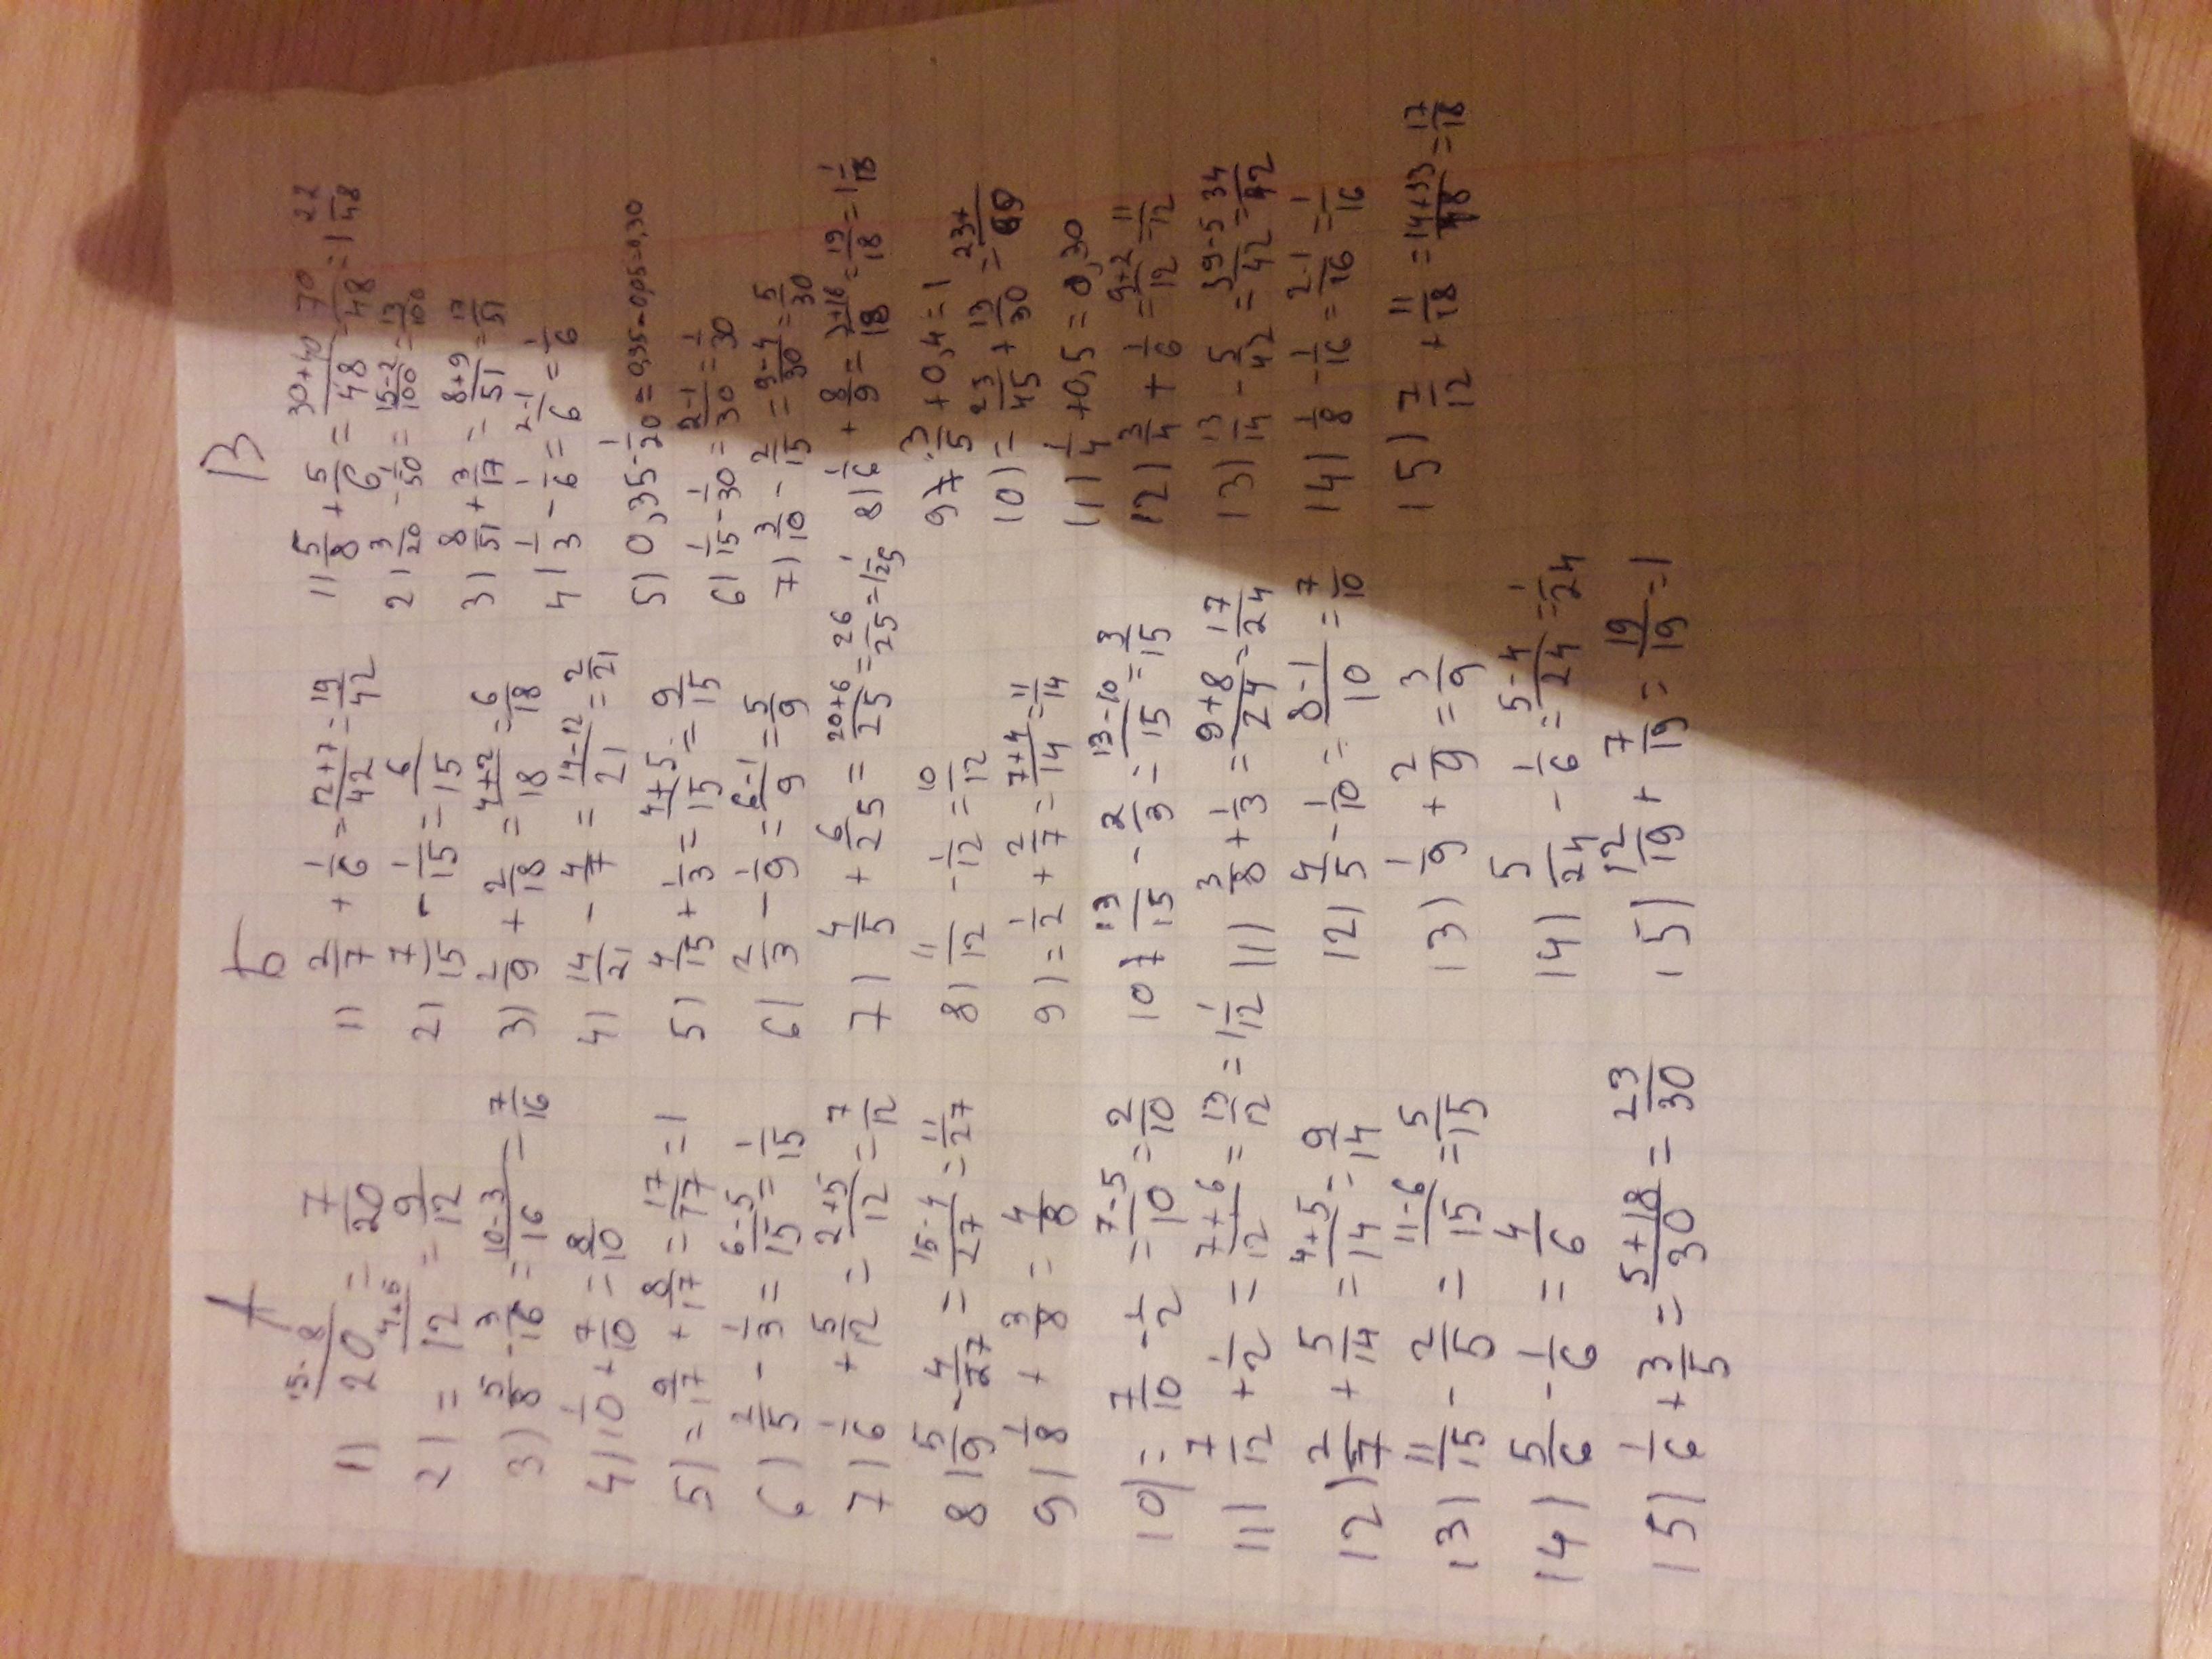 А
1) 15-8/20 = 7/20
2) = 4+5/12 = 9/12
3) 5/8 - 3/16 = 10-3/16 = 7/16
4) 1/10 + 7/10 = 8/10
5) = 9/17 + 8/17 = 17/17 = 1
6) 2/5 - 1/3 = 6-5/15 = 1/15
7) 1/6 + 5/12 = 2+5/12 = 7/12
8) 5/9 - 4/27 = 15-4/27 = 11/27
9) 1/8 + 3/8 = 4/8
10) = 7/10 - 1/2 = 7-5/10 = 2/10
11) 7/12 + 1/2 = 7+6/12 = 13/12 = 1 1/12
12) 2/7 + 5/14 = 4+5/14 = 9/14
13) 11/15 - 2/5 = 11-6/15 = 5/15
14) 5/6 - 1/6 = 4/6
15) 1/6 + 3/5 = 5+18/30 = 23/30
Б
1) 2/7 + 1/6 = 12+7/42 = 19/42
2) 7/15 - 1/15 = 6/15
3) 2/9 + 2/18 = 4+2/18 = 6/18
4) 14/21 - 4/7 = 14-12/21 = 2/21
5) 4/15 + 1/3 = 4+5/15 = 9/15
6) 2/3 - 1/9 = 6-1/9 = 5/9
7) 4/5 + 6/25 = 20+6/25 = 26/25 = 1 1/25
8) 11/12 - 1/12 = 10/12
9) = 1/2 + 2/7 = 7+4/14 = 11/14
10) 13/15 - 2/3 = 13-10/15 = 3/15
11) 3/8 + 1/3 = 9+8/24 = 17/24
12) 4/5 - 1/10 = 8-1/10 = 7/10
13) 1/9 + 2/9 = 3/9
14) 5/24 - 1/6 = 5-4/24 = 1/24
15) 12/19 + 7/19 = 19/19 = 1
В
1) 5/8 + 5/6 = 30+40/48 = 70/48 = 1 22/48
2) 3/20 - 1/50 = 15-2/100 = 13/100
3) 8/51 + 3/17 = 8+9/51 = 17/51
4) 1/3 - 1/6 = 2-1/6 = 1/6
5) 0,35 - 1/20 = 0,35-0,05=0,30
6) 1/15 - 1/30 = 2-1/30 = 1/30
7) 3/10 - 2/15 = 9-4/30 = 5/30
8) 1/6 + 8/9 = 3+16/18 = 19/18 = 1 1/18
9) 3/5 + 0,4 = 1
10) = 23/45 + 13/30 =
11) 1/4 + 0,5 = 0,30
12) 3/4 + 1/6 = 9+2/12 = 11/12
13) 13/14 - 5/42 = 39-5/42 = 34/42
14) 1/8 - 1/16 = 2-1/16 = 1/16
15) 7/12 + 11/18 = 14+33/18 = 17/18